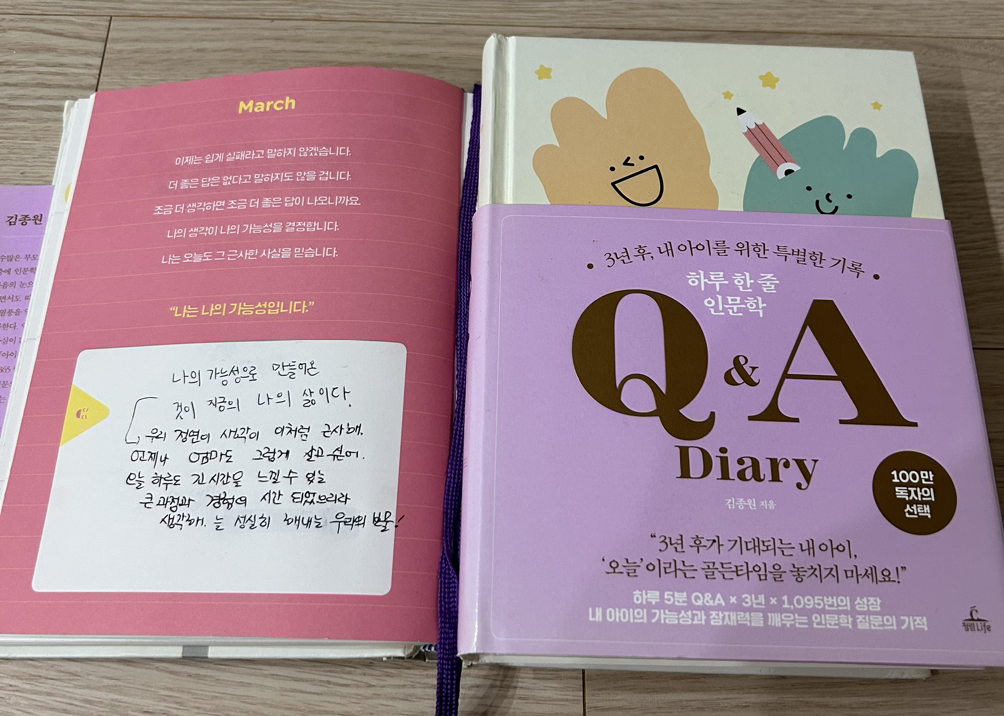 김종원
March
이제는 쉽게 실패라고 말하지 않겠습니다.
더 좋은 답은 없다고 말하지도 않을 겁니다.
조금 더 생각하면 조금 더 좋은 답이 나오니까요.
나의 생각이 나의 가능성을 결정합니다.
나는 오늘도 그 근사한 사실을 믿습니다.
“나는 나의 가능성입니다.”
나의 가능성으로 만들어온
것이 지금의 나의 삶이다.
우리 정연이 생각이 이처럼 근사해.
언제나 엄마도 그렇게 살고싶어.
오늘 하루도 긴 시간을 느낄 수 있는
큰 과정과 경험의 시간 되었으리라
생각해. 늘 성실히 해내는 우리의 보물!
3년 후, 내 아이를 위한 특별한 기록
하루 한 줄
인문학
Q & A
Diary
김종원 지음
100만
독자의
선택
“3년 후가 기대되는 내 아이,
‘오늘’이라는 골든타임을 놓치지 마세요!”
하루 5분 Q&A × 3년 × 1,095번의 성장
내 아이의 가능성과 잠재력을 깨우는 인문학 질문의 기적
청림Life